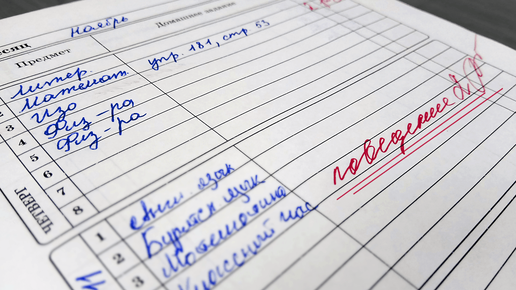 есяц Ноябрь
Предмет Домашнее задание
Литер.
2 Математ. упр. 181, стр. 53
3 Изо
4 Физ-ра
5 Физ-ра
6
7
8
поведение
ЧЕТВЕРГ
1 Англ. язык
2 Бурятск язык
3 Математика
Классный час